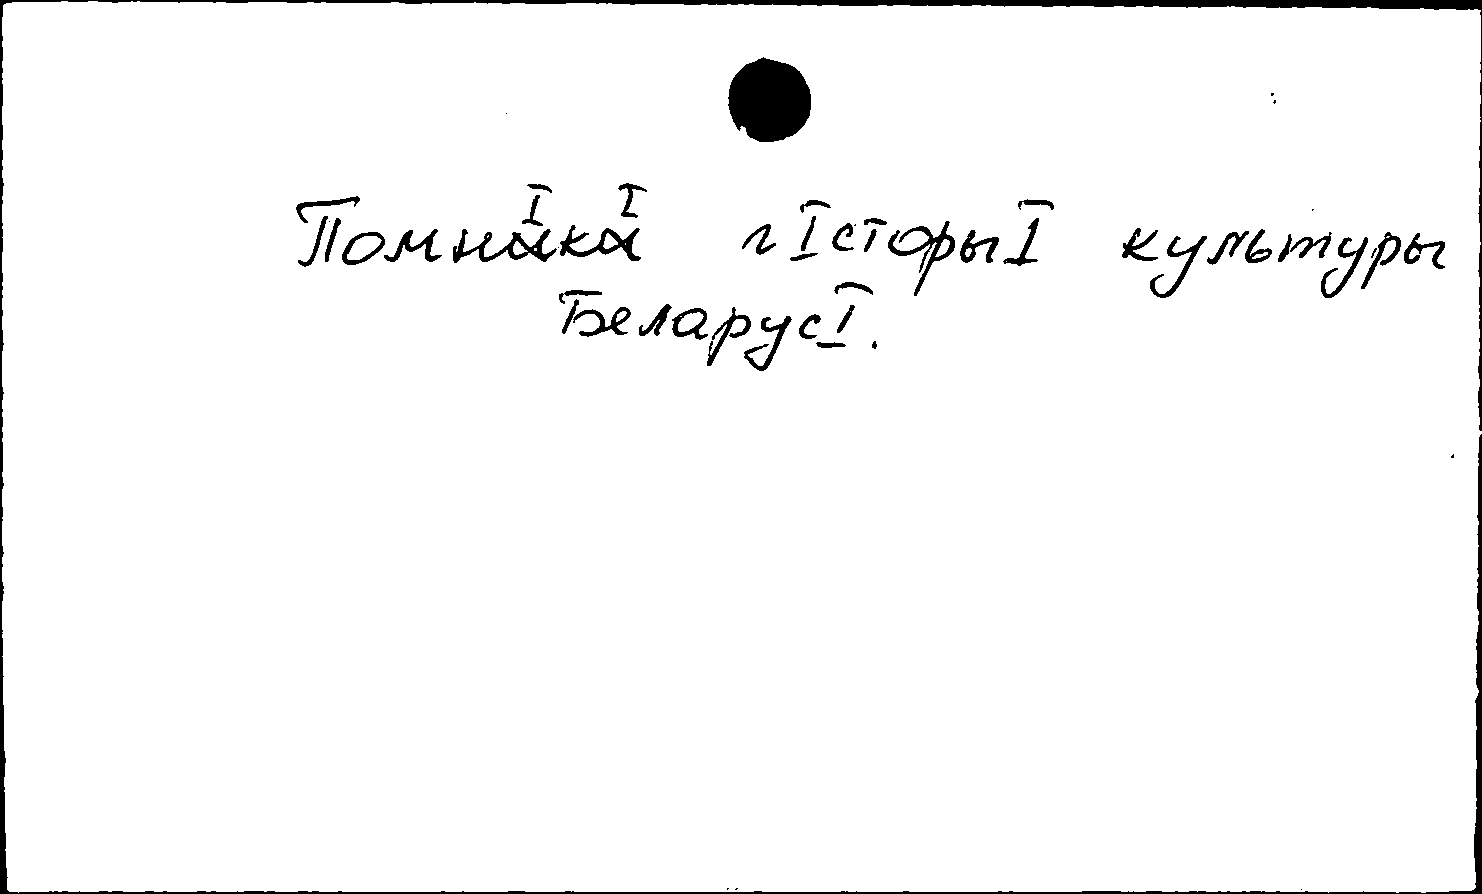 ПомнІкІ гІсторыІ культуры
БеларусІ.